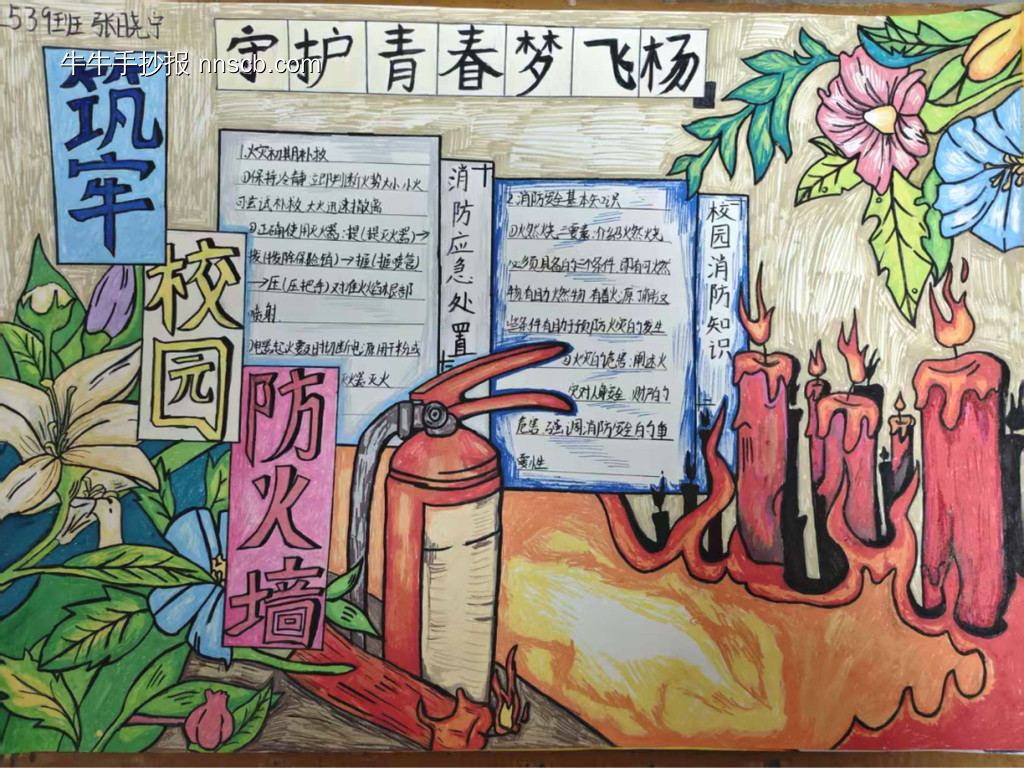 539班 张晓宁
牛牛手抄报 nnscb.com
守护青春梦飞杨
筑牢
校园
防火墙
1.火灾初期补救
①保持冷静 立即判断火势大小 小火
可尝试补救 大火迅速撤离
②正确使用灭火器:提(提灭火器)→
拨(拨除保险销)→握(握喷管)
→压(压把手)对准火焰根部
喷射.
灭火
消防应急处置
2.消防安全基本知识
①火燃烧三要素:介绍火燃烧
必须具备的三个条件 即有可燃
物 有助燃物 有着火源 消除这
些条件有助于预防火灾的发生
②火灾的危害:阐述火
灾对人身安全 财产的
危害 强调消防安全的重
要性
校园消防知识